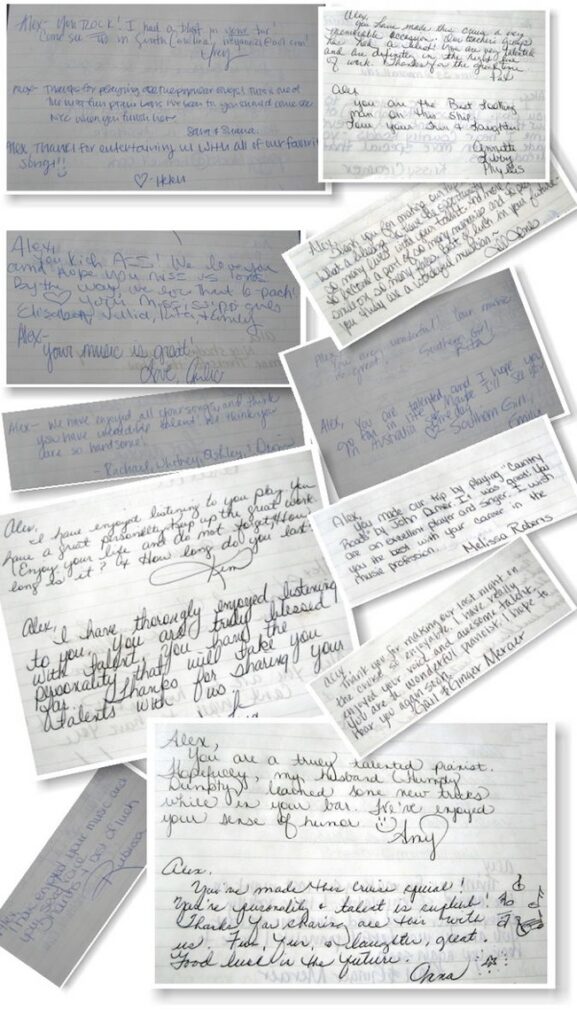 Alex- You ROCK! I had a blast in your bar
Come see us in South Carolina,
Alex- Thanks for playing all the popular songs! This is one of
the most fun piano bars I've been to you should come see
NYC when you finish here
Alex Thanks for entertaining us with all of our favorite
songs!!
♡- Helen
Alex, you have made this cruise a very
memorable occasion. Our teachers group
has had a blast! You are very talented
and are definitely in the right line
of work. Thanks for the great time
Alex
You are the Best looking
man on this Ship.
Love your Fun & laughter
Annette
Libby
Phyllis
Alex,
Thank you for making our trip
What a blessing to have the opportunity
so many lives with your talent. And more
to become a part of so many memories and to put
smiles on so many faces. Best of luck in your future
you truly are a wonderful musician ~
Alex,
You kick ASS! We love you
and hope you miss us tons.
By the way, we love that 6-pack!
♡ your Mississippi girls
Elisabeth, Emily
Alex-
your music is great!
Love,
Alex,
You are wonderful! Your music
is great! Southern Girl,
Rita
Alex, You are talented and I hope you
go far in life. Maybe I'll see you
in Australia someday
♡ Southern Girl,
Emily
Alex- We have enjoyed all your songs, and think
you have incredible talent! We think you
are so handsome!
- Rachael, Whitney, Ashley,
Alex,
I have enjoyed listening to you play. You
have a great personality. Keep up the great work.
Enjoy your life and do not forget "How
long is it? & How long do you last
Kim
Alex,
You made our trip by playing "Country
Road" by John Denver. It was great. You
are an excellent player and singer. I wish
you the best with your career in the
music profession.
Melissa Roberts
Alex, I have thorougly enjoyed listening
to you. You are truly blessed
with talent. You have the
personality that will take you
far. Thanks for sharing your
talents with us
Alex
Thank you for making our last night on
the cruise so enjoyable. I have really
enjoyed your voice and awesome talent.
You are a wonderful pianist. I hope to
hear you again soon.
Gail & Ginger Mercer
Alex,
You are a truly talented pianist.
Hopefully, my husband (Humpty
Dumpty) learned some new tricks
while in your bar. I've enjoyed
your sense of humor ☺
Amy
Alex
I have enjoyed your music and
Rebecca
Alex,
You've made this cruise special!
You're personality & talent is superb!
Thank you sharing all this with
us. Fun, Fun, & laughter, great.
Good luck in the future
Anna